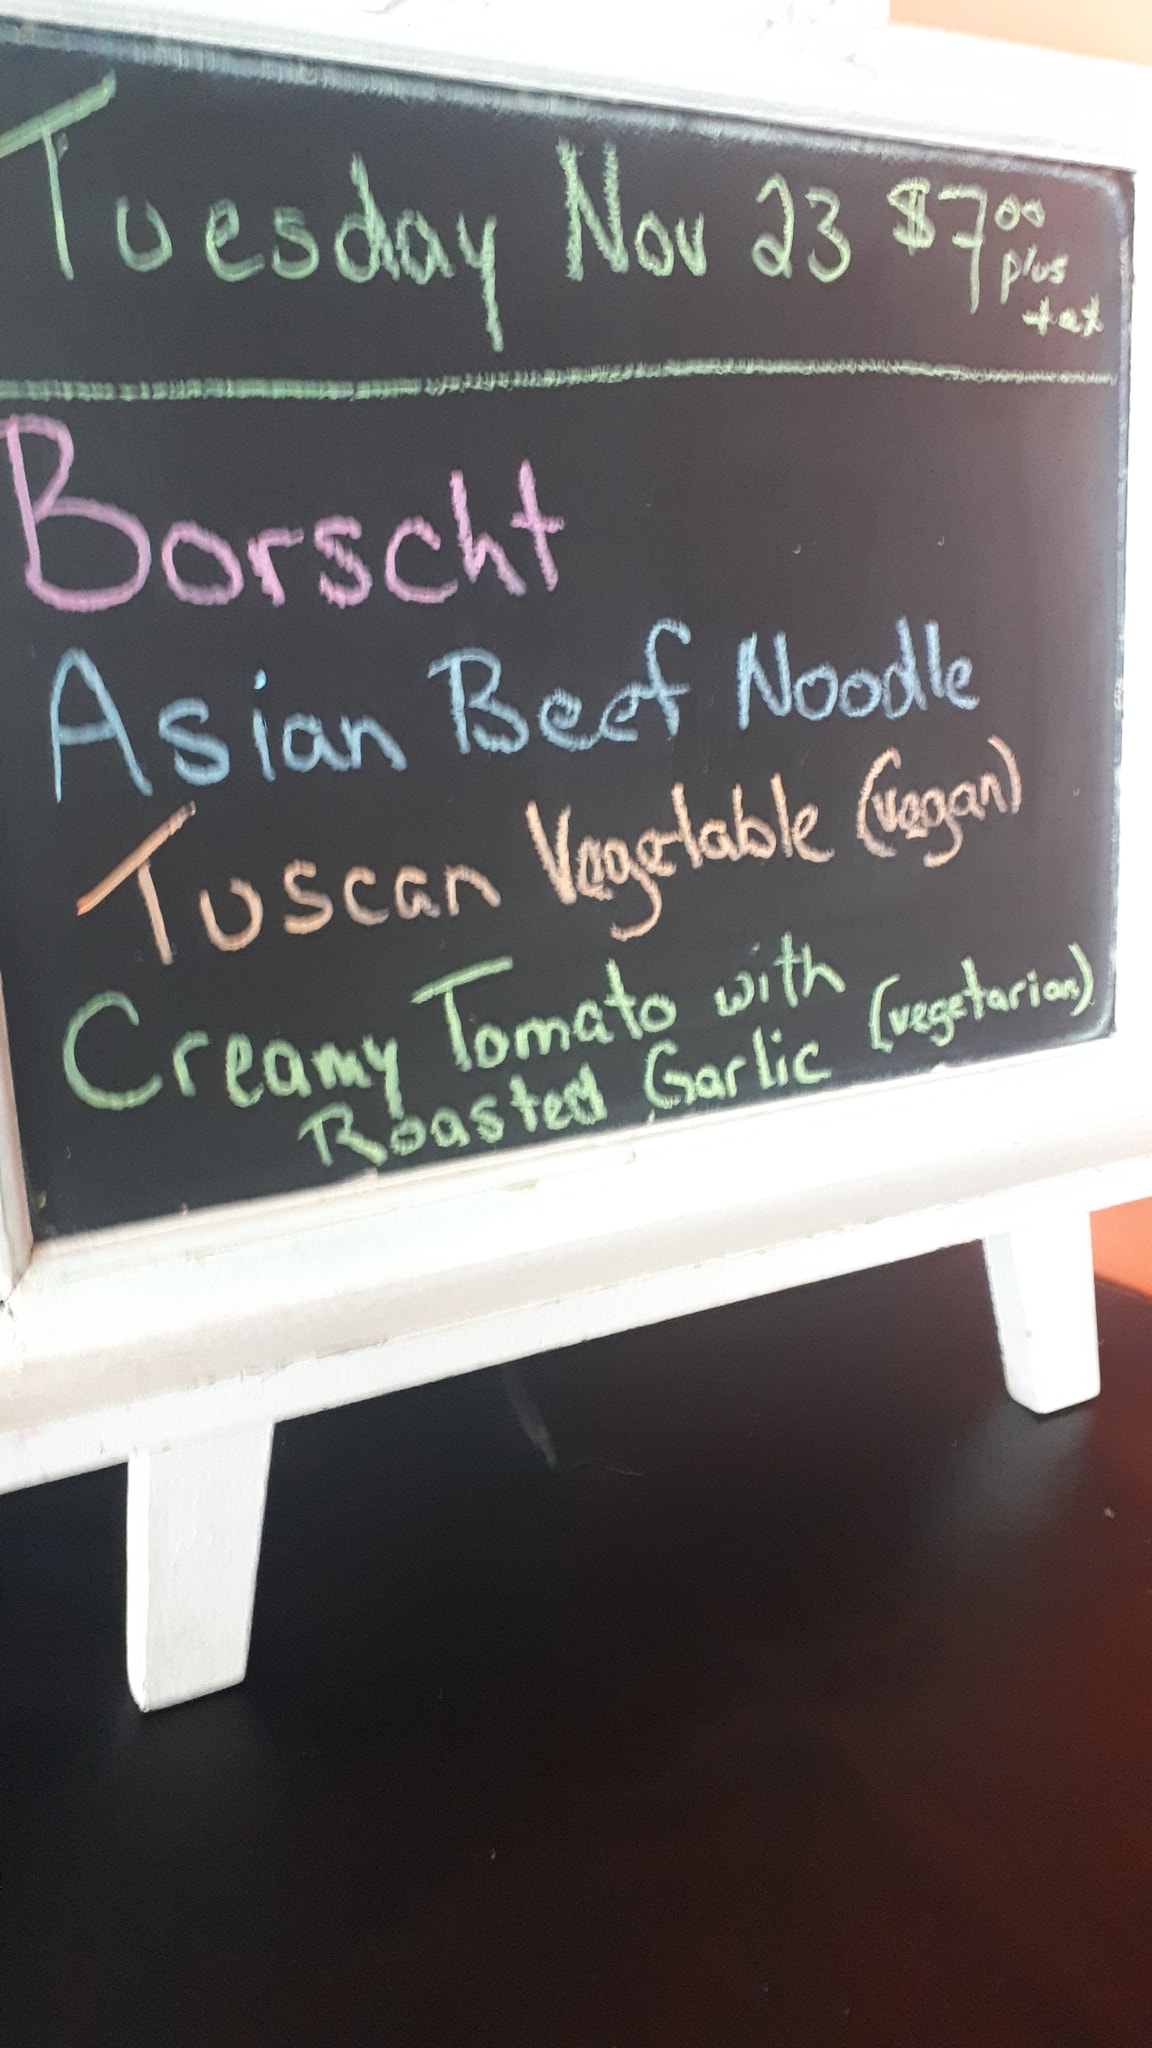 Tuesday Nov 23 $7.00
plus
tax
Borscht
Asian Beef Noodle
Tuscan Vegetable (vegan)
Creamy Tomato with
Roasted Garlic (vegetarian)